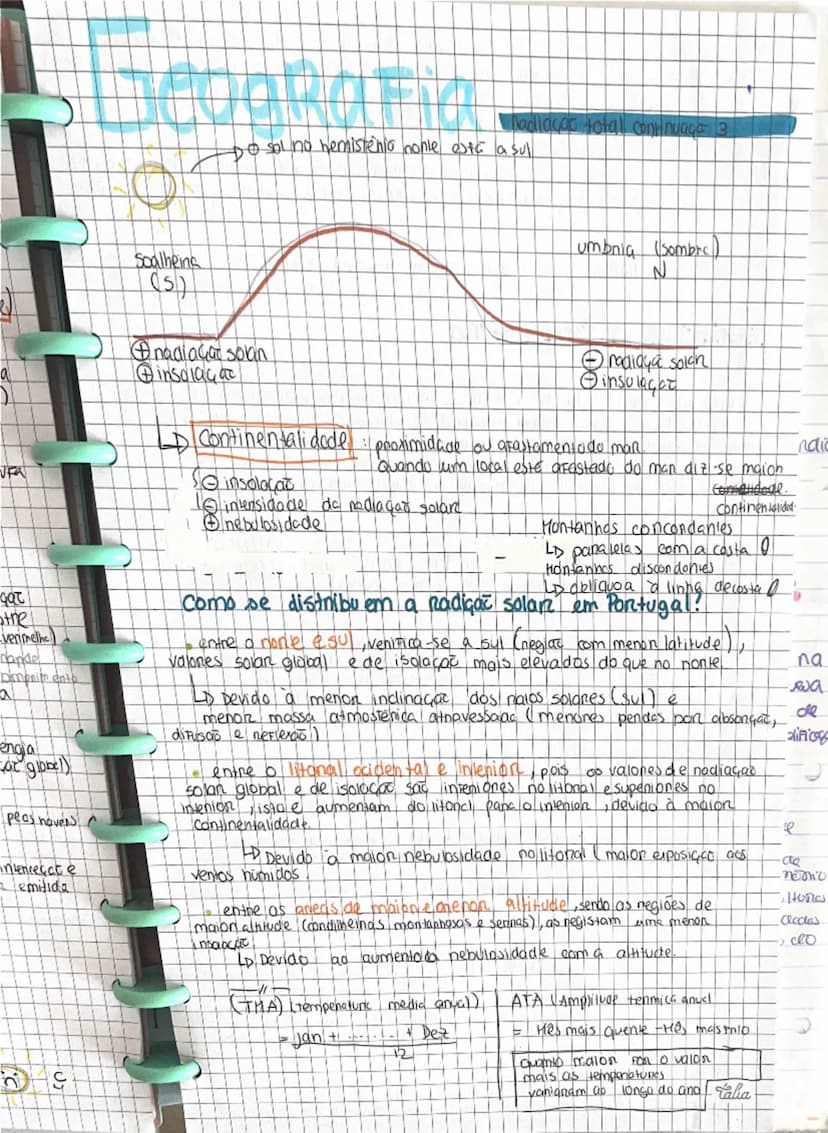 Geografia
radiação total continuação 3
o sol no hemisfério norte está a sul
soalheira
(S)
umbria (sombra)
N
+ radiação solar
+ insolação
- radiação solar
- insolação
Continentalidade : proximidade ou afastamento do mar.
Quando um local está afastado do mar diz-se maior
continentalidad
- insolação
- intensidade da radiação solar
+ nebulosidade
Montanhas concordantes
↳ paralelas com a costa
Montanhas discordantes
↳ oblíquoa à linha de costa
Como se distribuem a radiçaõ solar em Portugal?
• entre o norte e sul, verifica-se a sul (região com menor latitude),
valores solar global e de isolação mais elevadas do que no norte
↳ Devido à menor inclinação dos raios solares (sul) e
menor massa atmosférica atravessada (menores perdas por absorção,
difusão e reflexão)
• entre o litoral ocidental e interior, pois os valores de radiação
solar global e de isolação são inferiores no litoral e superiores no
interior, isto é aumentam do litoral para o interior, devido à maior
continentalidade
↳ Devido à maior nebulosidade no litoral (maior exposição aos
ventos húmidos.
• entre as areas de maior e menor altitude, sendo as regiões de
maior altitude (cordilheiras montanhosas e serras), as registam uma menor
insolação
↳ Devido ao aumento da nebulosidade com a altitude.
(TMA) (Temperatura media anual)
= Jan + ....... + Dez
12
ATA (Amplitude termica anual
= Mês mais quente - Mês mais frio
Quanto maior for o valor
mais as temperatures
variaram ao longo do ano
Tália